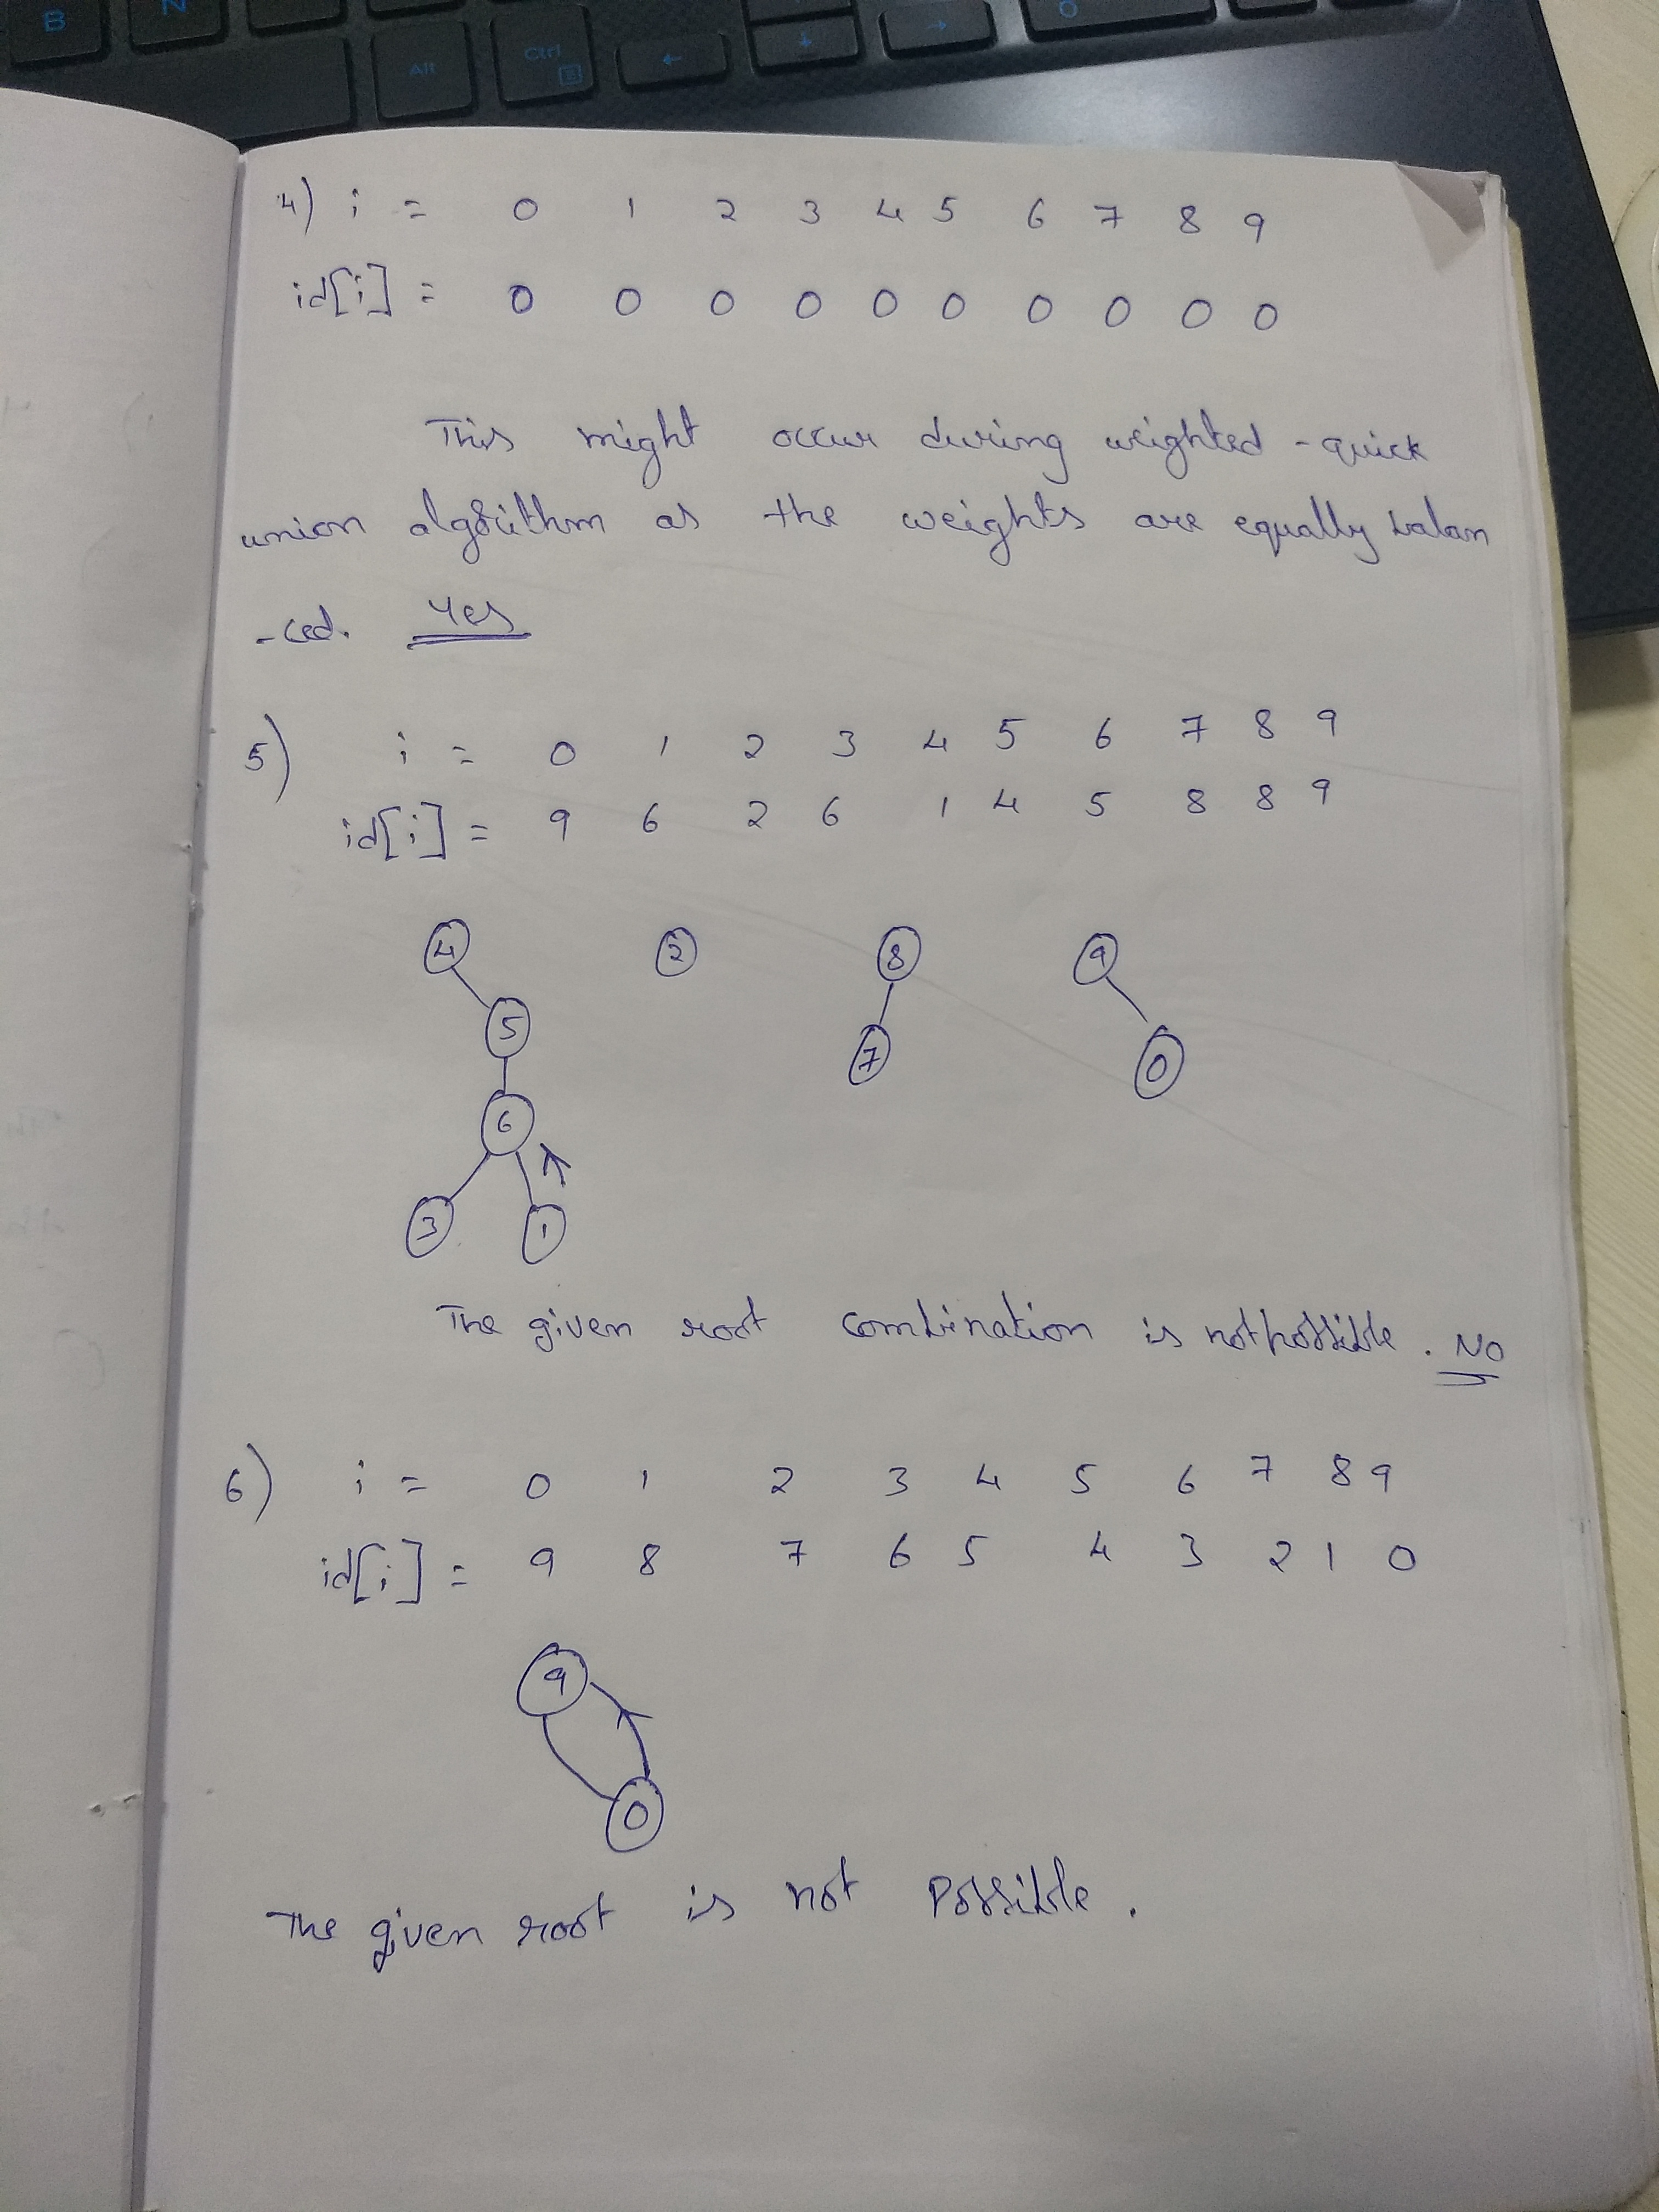 B N
Alt Ctrl ← ↓ →
4) i = 0 1 2 3 4 5 6 7 8 9
id[i] = 0 0 0 0 0 0 0 0 0 0
This might occur during weighted - quick
union algorithm as the weights are equally balan
- ced. Yes
5) i = 0 1 2 3 4 5 6 7 8 9
id[i] = 9 6 2 6 1 4 5 8 8 9
4 2 8 9
5
7 0
6
3 1
The given root combination is not possible. NO
6) i = 0 1 2 3 4 5 6 7 8 9
id[i] = 9 8 7 6 5 4 3 2 1 0
9
0
The given root is not Possible.